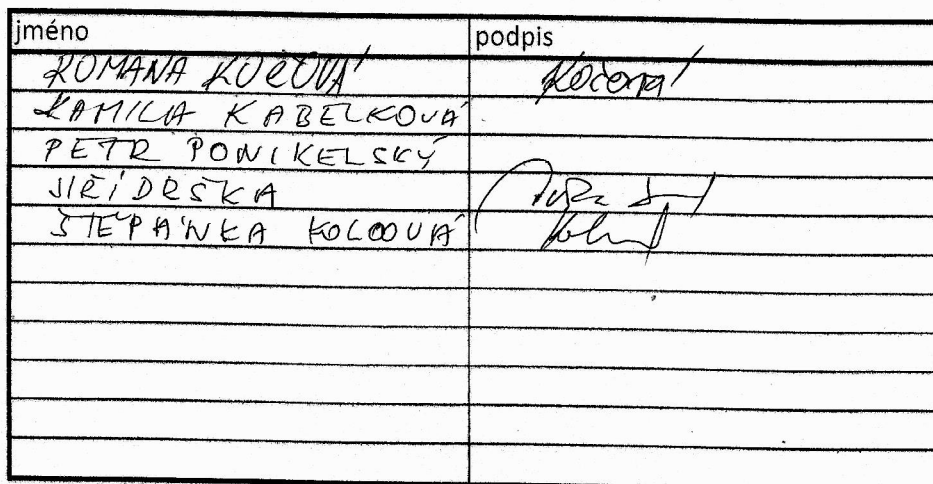 jméno podpis
ROMANA KOČOVÁ Kočová
KAMILA KABELKOVÁ
PETR PONIKELSKÝ
JIŘÍ DRŠKA
ŠTĚPÁNKA